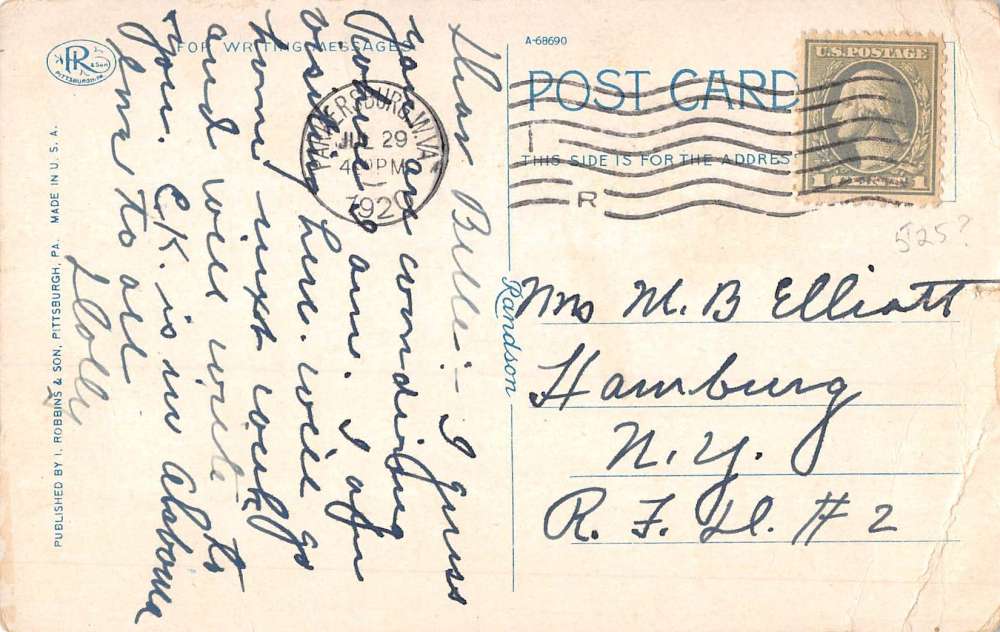 FOR WRITING MESSAGES
R
& SON
PITTSBURGH, PA.
PUBLISHED BY I. ROBBINS & SON, PITTSBURGH, PA. MADE IN U. S. A.
Dear Belle:- I guess
you are wondering
where I am. I am
visiting here. will go
home next week
and will write to
you. C.K. is in Alabama
Love to all
Dolly
A-68690
POST CARD
THIS SIDE IS FOR THE ADDRESS
PARKERSBURG, W.VA.
JUL 29
4 PM
1920
1
R
U.S. POSTAGE
1 1
525?
Randson
Mrs M. B Elliott
Hamburg
N. Y.
R. F. D. # 2